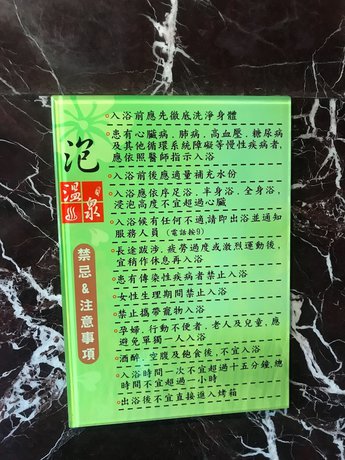 泡
溫泉
禁忌&注意事項
◦入浴前應先徹底洗淨身體
◦患有心臟病.肺病.高血壓.糖尿病
及其他循環系統障礙等慢性疾病者,
應依照醫師指示入浴
◦入浴前後應適量補充水份
◦入浴應依序足浴、半身浴、全身浴,
浸泡高度不宜超過心臟
◦入浴候有任何不適,請即出浴並通知
服務人員(電話按9)
◦長途跋涉.疲勞過度或激烈運動後,
宜稍作休息再入浴
◦患有傳染性疾病者禁止入浴
◦女性生理期間禁止入浴
◦禁止攜帶寵物入浴
◦孕婦.行動不便者、老人及兒童,應
避免單獨一人入浴
◦酒醉.空腹及飽食後,不宜入浴
◦入浴時間一次不宜超過十五分鐘,總
時間不宜超過一小時
◦出浴後不宜直接進入烤箱